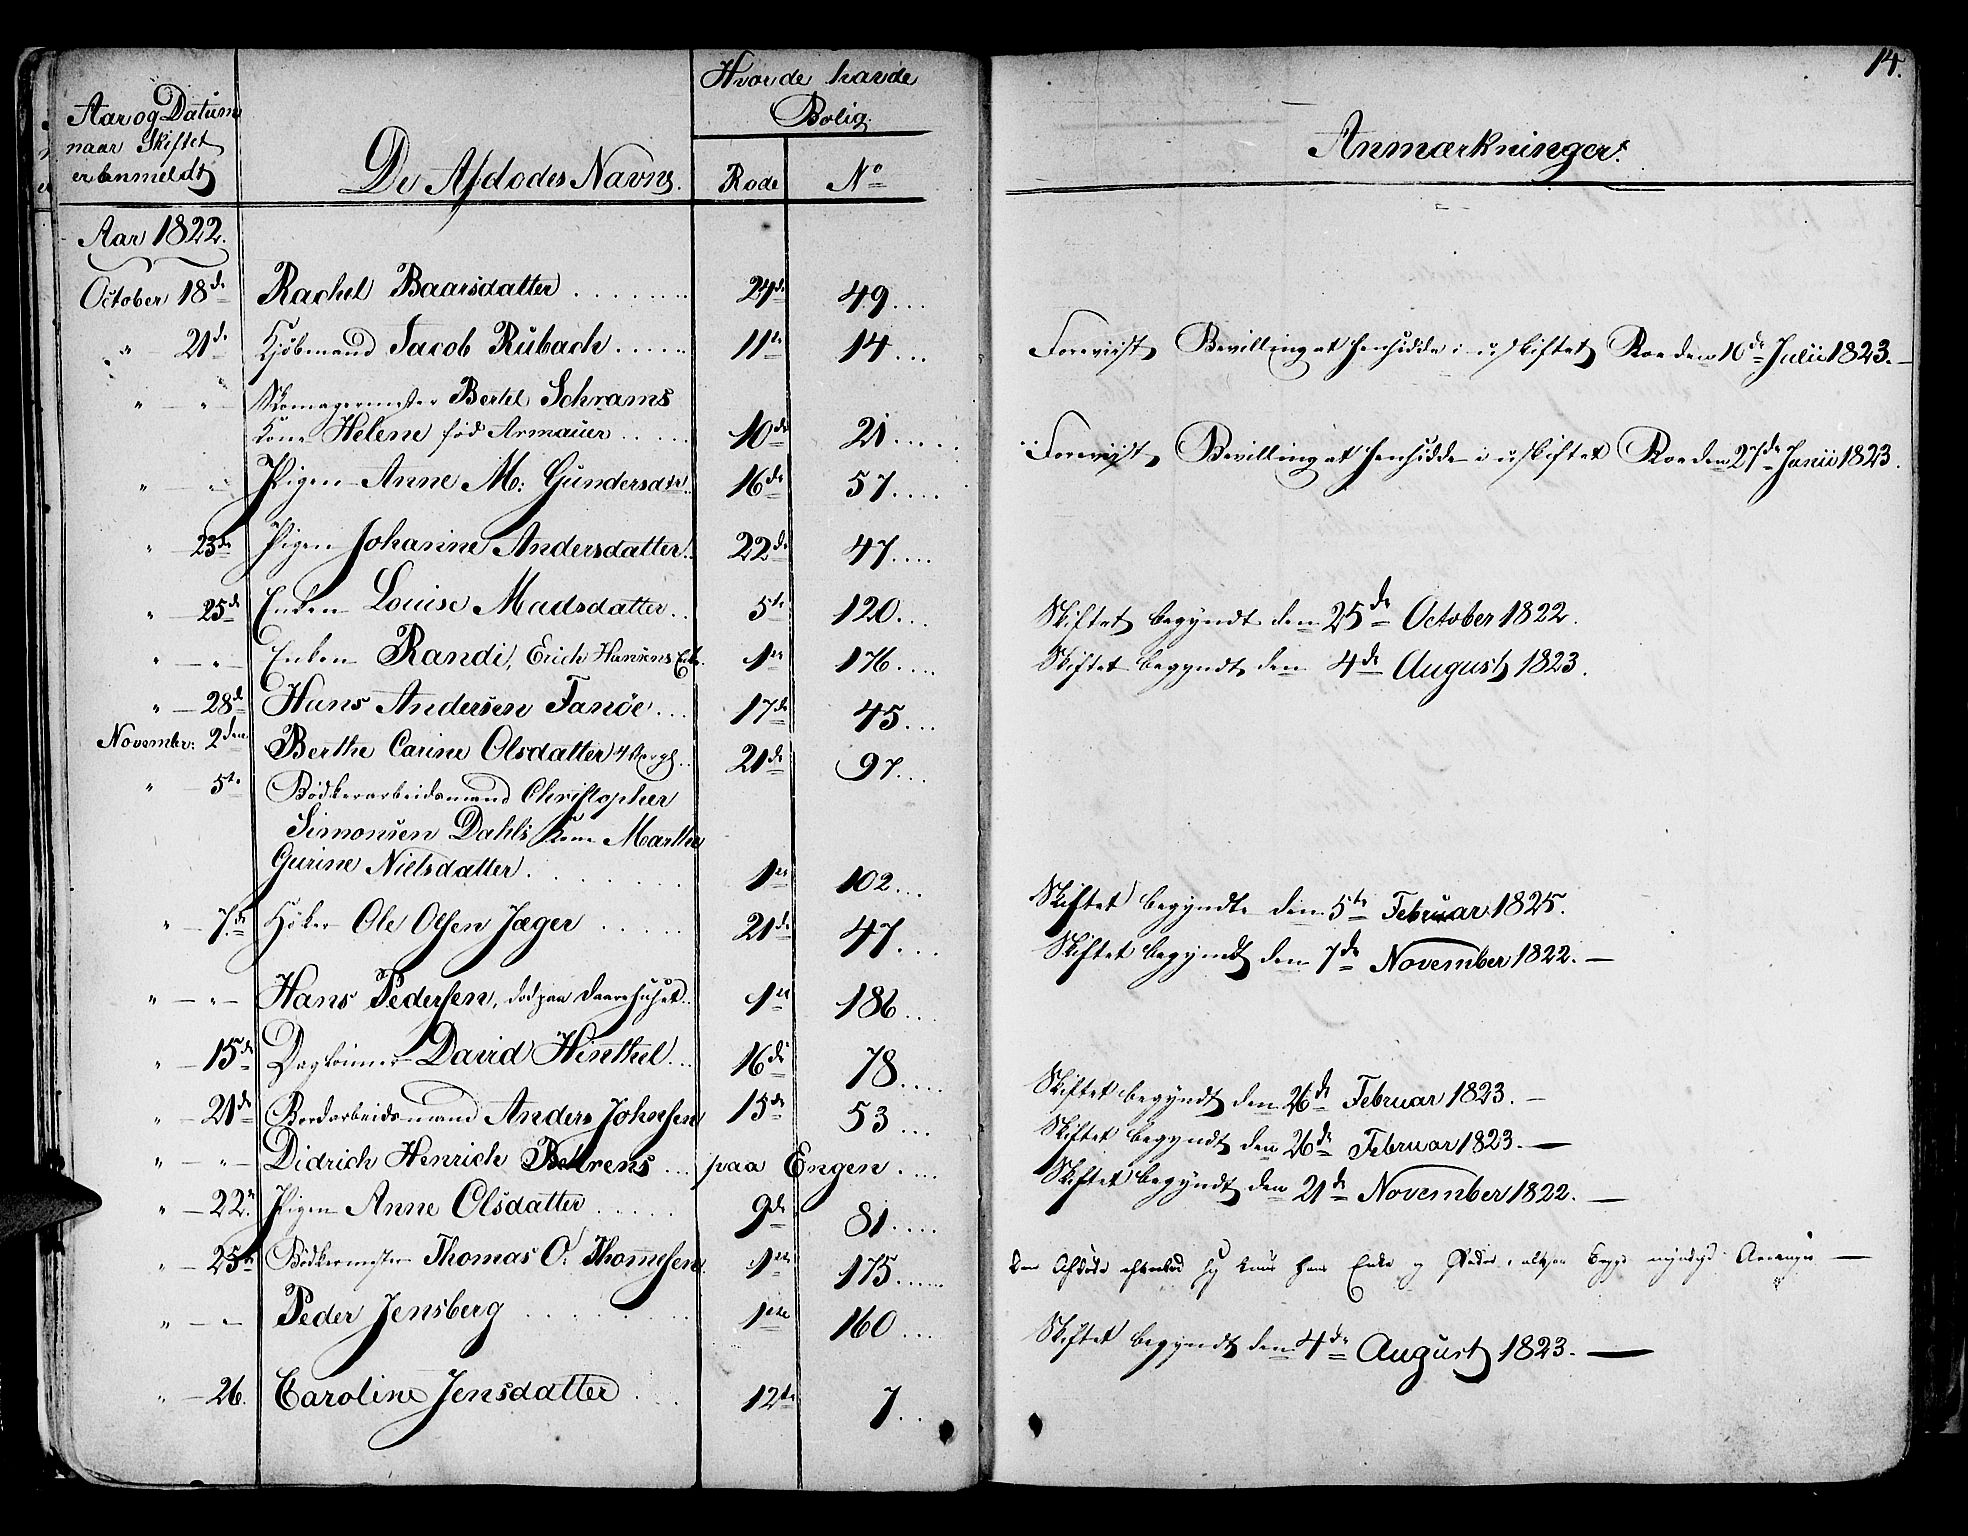 14.
Aar og Datum
naar Skiftet
er anmeldt
De Afdødes Navne.
Hvor de havde
Bolig.
Rode No
Anmærkninger.
Aar 1822.
October 18de Rachel Baarsdatter ........ 24de 49....
" — 21de Kjøbmand Jacob Rübach ...... 11te 14... Foreviist Bevilling at hensidde i uskiftet Boe den 10de Julii 1823. —
" — " — Skomagermester Berhl Schrams
Kone Helene fød Armauer ...... 10de 21..... Foreviist Bevilling at hensidde i uskiftet Boe den 27de Junii 1823.
" — " — Pigen Anne M: Gundersdatr.. 16de 57....
" — 23de Pigen Johanne Andersdatter.. 22de 47....
" — 25de Enken Louise Madsdatter.. 5te 120... Skiftet begyndt den 25de October 1822.
" — " — Enken Randi, Erich Hansens Enke. 1ste 176.... Skiftet begyndt den 4de August 1823.
" — 28de Hans Andersen Fanöe.... 17de 45...
November: 2den Berthe Carine Olsdatter .. 21de 97...
" — 5te Bødkerarbeidsmand Christopher
Simonsen Dahls Kone Marthe
Gurine Nielsdatter......... 1ste 102... Skiftet begyndte den 5te Februar 1825.
" — 7de Høker Ole Olsen Jæger ...... 21de 47... Skiftet begyndt den 7de November 1822. —
" — " — Hans Pedersen, død paa Daarehuset.. 1ste 186...
" — 15de Dagleiner David Hinthel... 16de 78.... Skiftet begyndt den 26de Februar 1823. —
" — 21de Bordarbeidsmand Anders Johnsen 15de 53... Skiftet begyndt den 26de Februar 1823. —
" — " — Didrich Henrich Behrens ... paa Engen.... Skiftet begyndt den 21de November 1822. —
" — 22. Pigen Anne Olsdatter ...... 9de 81....
" — 25de Bødkermester Thomas O. Thomesen. 1ste 175..... Den Afdøde efterlod sig kuns hans Enke og —
" — " — Peder Jensberg ......... 1ste 160.... Skiftet begyndt den 4de August 1823. —
" — 26. Caroline Jensdatter .... 12te 7...